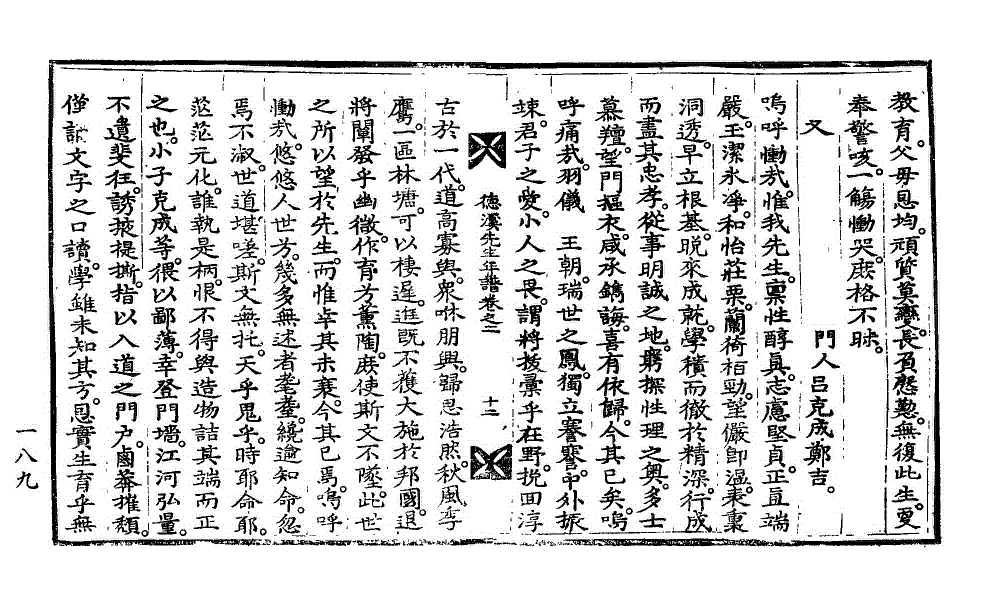 教育。父母恩均。頑質莫變。長負慇懃。無復此生。更
奉警咳。一觴慟哭。庶格不昧。
又　門人呂克成鄭吉。
嗚呼慟哉。惟我先生。稟性醇眞。志慮堅貞。正直端
嚴。玉潔氷淨。和怡莊栗。蘭倚栢勁。望儼卽溫。表裏
洞透。早立根基。晩來成就。學積而徹於精深。行成
而盡其忠孝。從事明誠之地。窮探性理之奧。多士
慕羶。望門摳衣。咸承鐫誨。喜有依歸。今其已矣。嗚
呼痛哉。羽儀　王朝。瑞世之鳳。獨立謇謇。中外振
竦。君子之愛。小人之畏。謂將拔彙乎在野。挽回淳
德溪先生年譜卷之二　十二
古於一代。道高寡與。衆咻朋興。歸思浩然。秋風季
鷹。一區林塘。可以棲遲。進旣不獲大施於邦國。退
將闡發乎幽微。作育方薰陶。庶使斯文不墜。此世
之所以望於先生。而惟幸其未衰。今其已焉。嗚呼
慟哉。悠悠人世。方幾多無述者耄耋。纔逾知命。忽
焉不淑。世道堪嗟。斯文無托。天乎鬼乎。時耶命耶。
茫茫元化。誰執是柄。恨不得與造物詰其端而正
之也。小子克成等。猥以鄙薄。幸登門墻。江河弘量。
不遺斐狂。誘掖提撕。指以入道之門戶。鹵莽摧頹。
僅記文字之口讀。學雖未知其方。恩實生育乎無
一八九